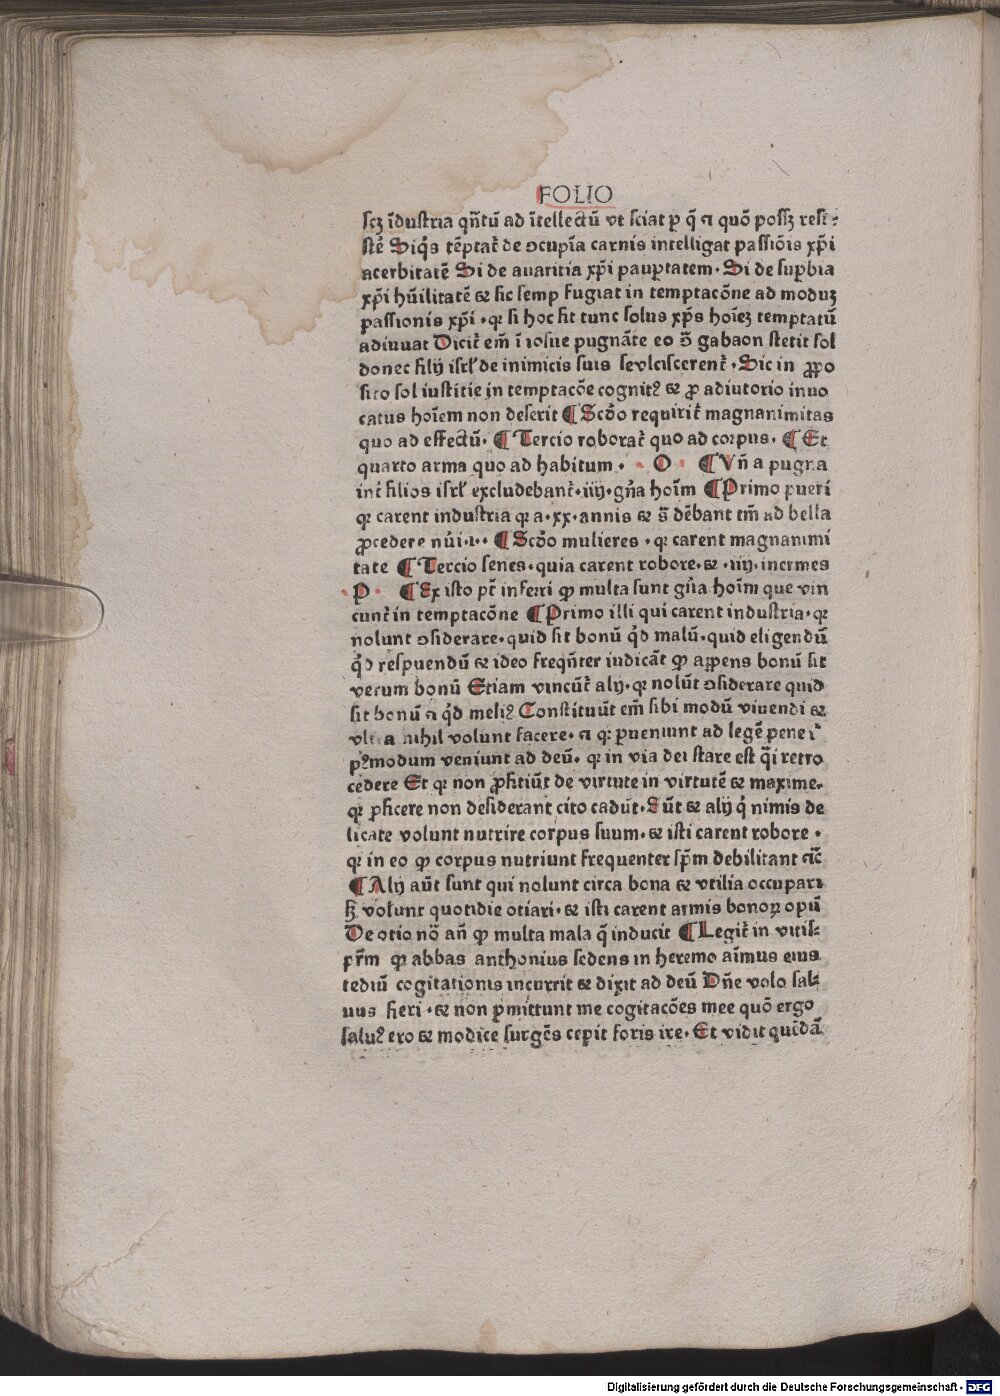 FOLIO
scꝫ ĩdustria qñtũ ad ĩtellectũ vt sciat p q̃ ⁊ quõ possꝫ resi⸗
stẽ Siq̃s tẽptat᷑ de ↄcupĩa carnis intelligat passiõis xp̃i
acerbitatẽ Si de auaritia xp̃i paupꝛtatem · Si de supꝛbia
xp̃i hũilitatẽ ⁊ sic semp fugiat in temptacõne ad moduꝫ
passionis xp̃i · qꝛ si hoc sit tunc solus xp̃s hoĩeꝫ temptatũ
adiuuat Dicit᷑ em̃ ĩ iosue pugnãte eo ↄ̃ gabaon stetit sol
donec filij isrl̃ de inimicis suis sevlciscerent᷑ · Sic in ꝓpo
sito sol iustitie in temptacõe cognitꝰ ⁊ ꝓ adiutorio inuo
catus hoĩem non deserit ¶ Scðo requirit᷑ magnanimitas
quo ad effectũ · ¶ Tercio roborat᷑ quo ad corpus · ¶ Et
quarto arma quo ad habitum · · O · ¶ Vñ a pugna
int᷑ filios isrl̃ excludebant᷑ · iiij · gña hoĩm ¶ Primo pueri
qꝛ carent industria qꝛ a · xx · annis ⁊ s̃ dẽbant tm̃ ad bella
ꝓcedere nũi · i · · ¶ Scðo mulieres · qꝛ carent magnanimi
tate ¶ Tercio senes · quia carent robore · ⁊ · iiij · inermes
· P · ¶ Ex isto pt̃ inferri ꝙ multa sunt gña hoĩm que vin
cunt᷑ in temptacõne ¶ Primo illi qui carent industria · qꝛ
nolunt ↄsiderare · quid sit bonũ q̃d malũ · quid eligendũ
q̃d respuendũ ⁊ ideo freqñter iudicãt ꝙ aꝑens bonũ sit
verum bonũ Etiam vincũt᷑ alij · qꝛ nolũt ↄsiderare quid
sit bonũ ⁊ q̃d meliꝰ Constituũt em̃ sibi modũ viuendi ⁊
vltra nihil volunt facere · ⁊ qꝛ ꝑueniunt ad legẽ pene ĩ
pꝰmodum veniunt ad deũ · qꝛ in via dei stare est q̃i retro
cedere Et qꝛ non ꝓficiũt de virtute in virtutẽ ⁊ maxime ·
qꝛ ꝑficere non desiderant cito cadũt · Sũt ⁊ alij q̃ nimis de
licate volunt nutrire corpus suum · ⁊ isti carent robore ·
qꝛ in eo ꝙ corpus nutriunt frequenter sp̃m debilitant ⁊c̃
¶ Alij aũt sunt qui nolunt circa bona ⁊ vtilia occupari
sꝫ volunt quotidie otiari · ⁊ isti carent armis bonoꝝ opũ
De otio nõ añ ꝙ multa mala q̃ inducit ¶ Legit᷑ in vitis⸗
pr̃m qꝛ abbas anthonius sedens in heremo aĩmus eius
tediũ cogitationis incurrit ⁊ dixit ad deũ Dñe volo sal⸗
uus fieri · ⁊ non ꝑmittunt me cogitacões mee quõ ergo
saluꝰ ero ⁊ modice surgẽs cepit foris ire · Et vidit quẽdã
Digitalisierung gefördert durch die Deutsche Forschungsgemeinschaft - DFG